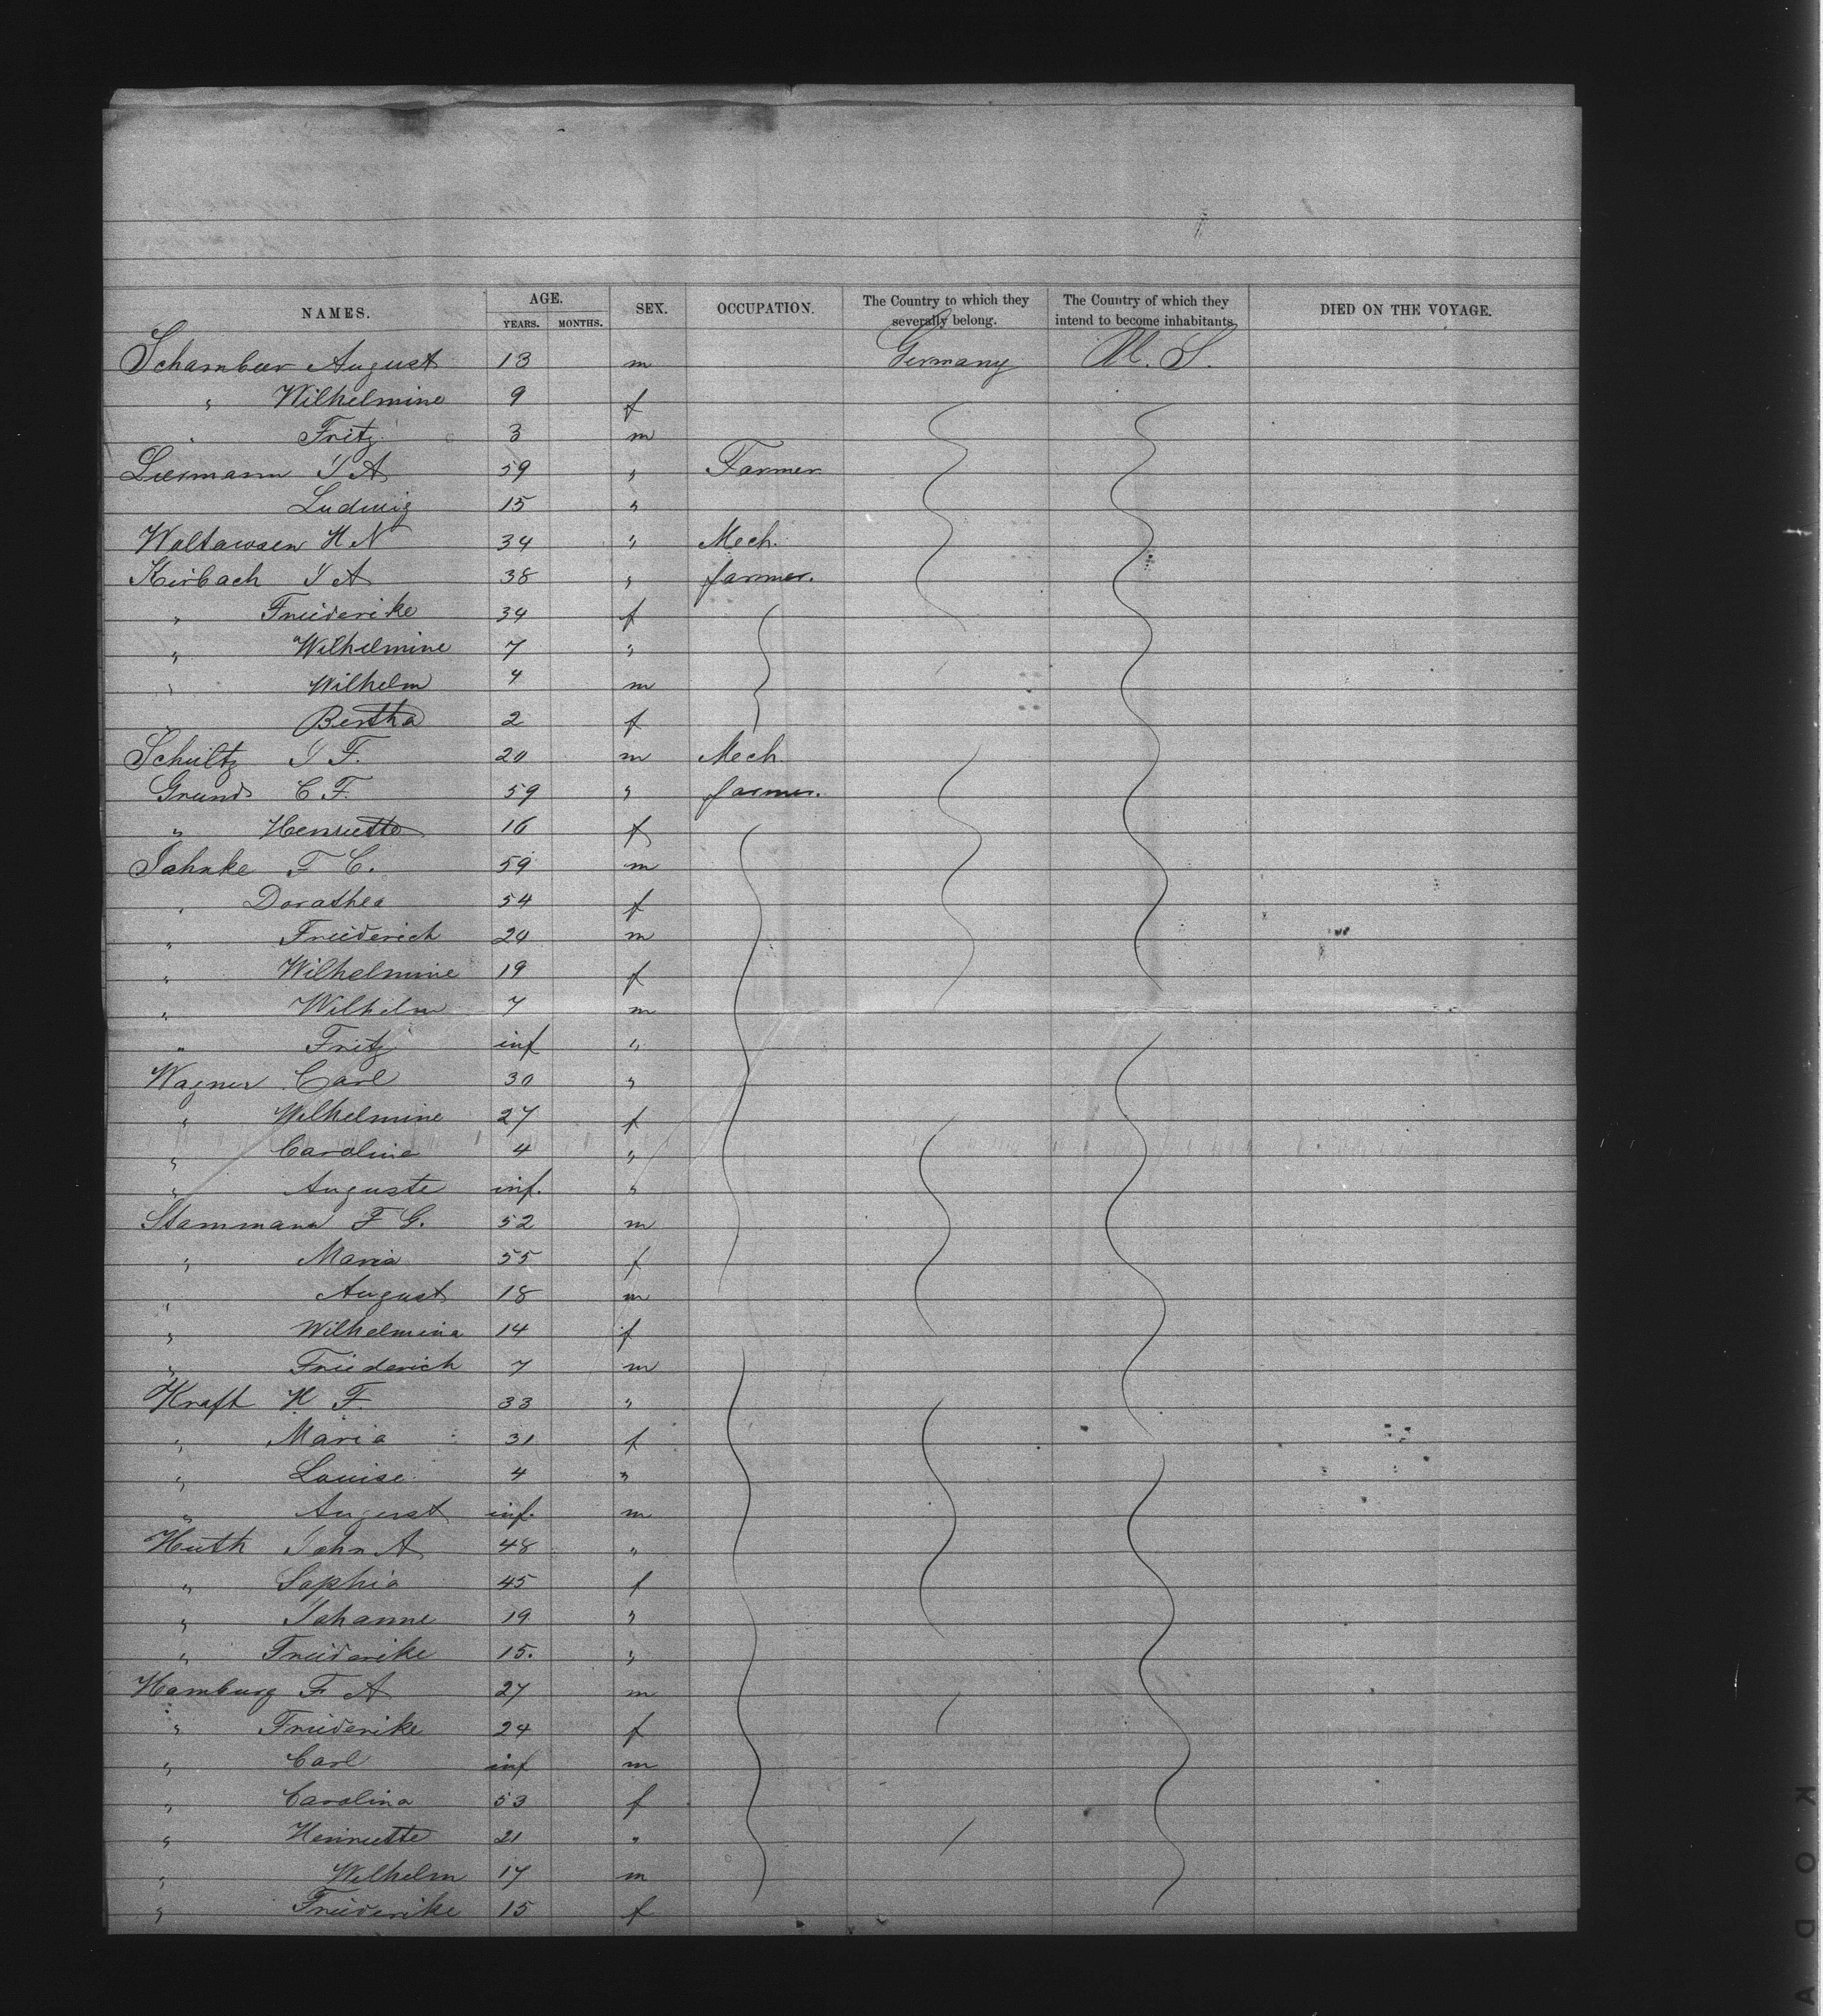 NAMES. AGE. YEARS. MONTHS. SEX. OCCUPATION. The Country to which they severally belong. The Country of which they intend to become inhabitants. DIED ON THE VOYAGE.
August 13 m Germany U. S.
" Wilhelmine 9 f
" Fritz 3 m
J A 59 " Farmer
Ludwig 15 "
H N 34 " Mech.
Kirbach J A 38 " farmer.
" Friederike 34 f
" Wilhelmine 7 "
" Wilhelm 4 m
" Bertha 2 f
Schultz J F. 20 m Mech.
Grund C F. 59 " farmer.
" Henriette 16 f
Jahnke F C. 59 m
" Dorathea 54 f
" Friederich 24 m
" Wilhelmine 19 f
" Wilhelm 7 m
" Fritz inf "
Wagner Carl 30 "
" Wilhelmine 27 f
" Caroline 4 "
" Auguste inf. "
Stammann F G. 52 m
" Maria 55 f
" August 18 m
" Wilhelmina 14 f
" Friederich 7 m
Kraft H F. 33 "
" Maria 31 f
" Louise 4 "
" August inf. m
Huth John A 48 "
" Sophia 45 f
" Johanne 19 "
" Friederike 15. "
Hamburg F A 27 m
" Friederike 24 f
" Carl inf m
" Carolina 53 f
" Henriette 21 "
" Wilhelm 17 m
" Friederike 15 f
KODA